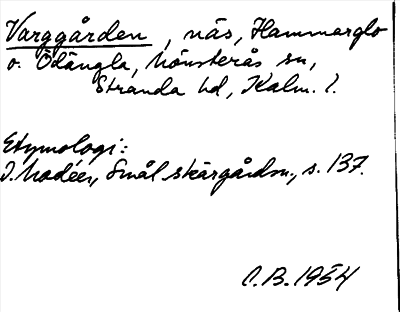 Varggården, näs, Hammarglo
o. Ödängla, Mönsterås sn,
Stranda hd, Kalm. l.
Etymologi:
I. Modéer, Smål skärgårdsn., s. 137.
C.B. 1954